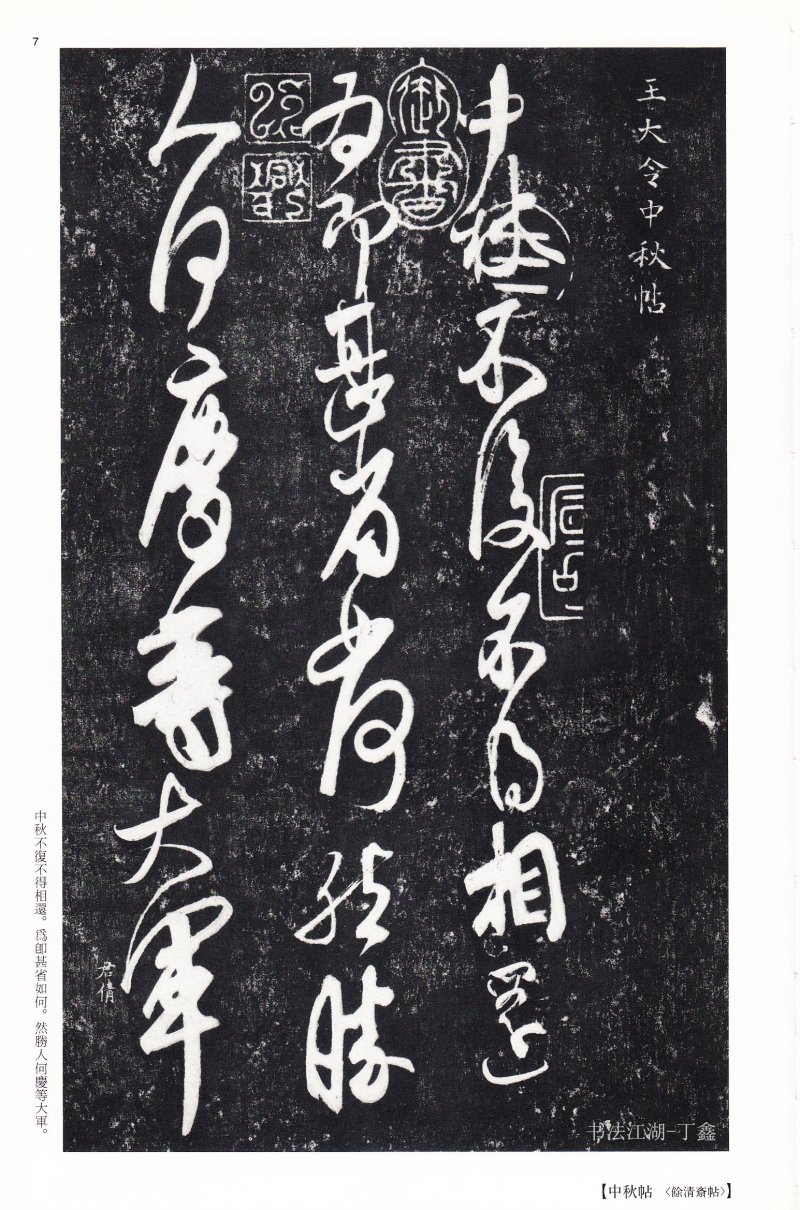 7
王大令中秋帖
中秋不復不得相還
為即甚省如何然勝
人何慶等大軍
御書
君倩
中秋不復不得相還。爲卽甚省如何。然勝人何慶等大軍。
书法江湖-丁鑫
【中秋帖 〈餘清齋帖〉】